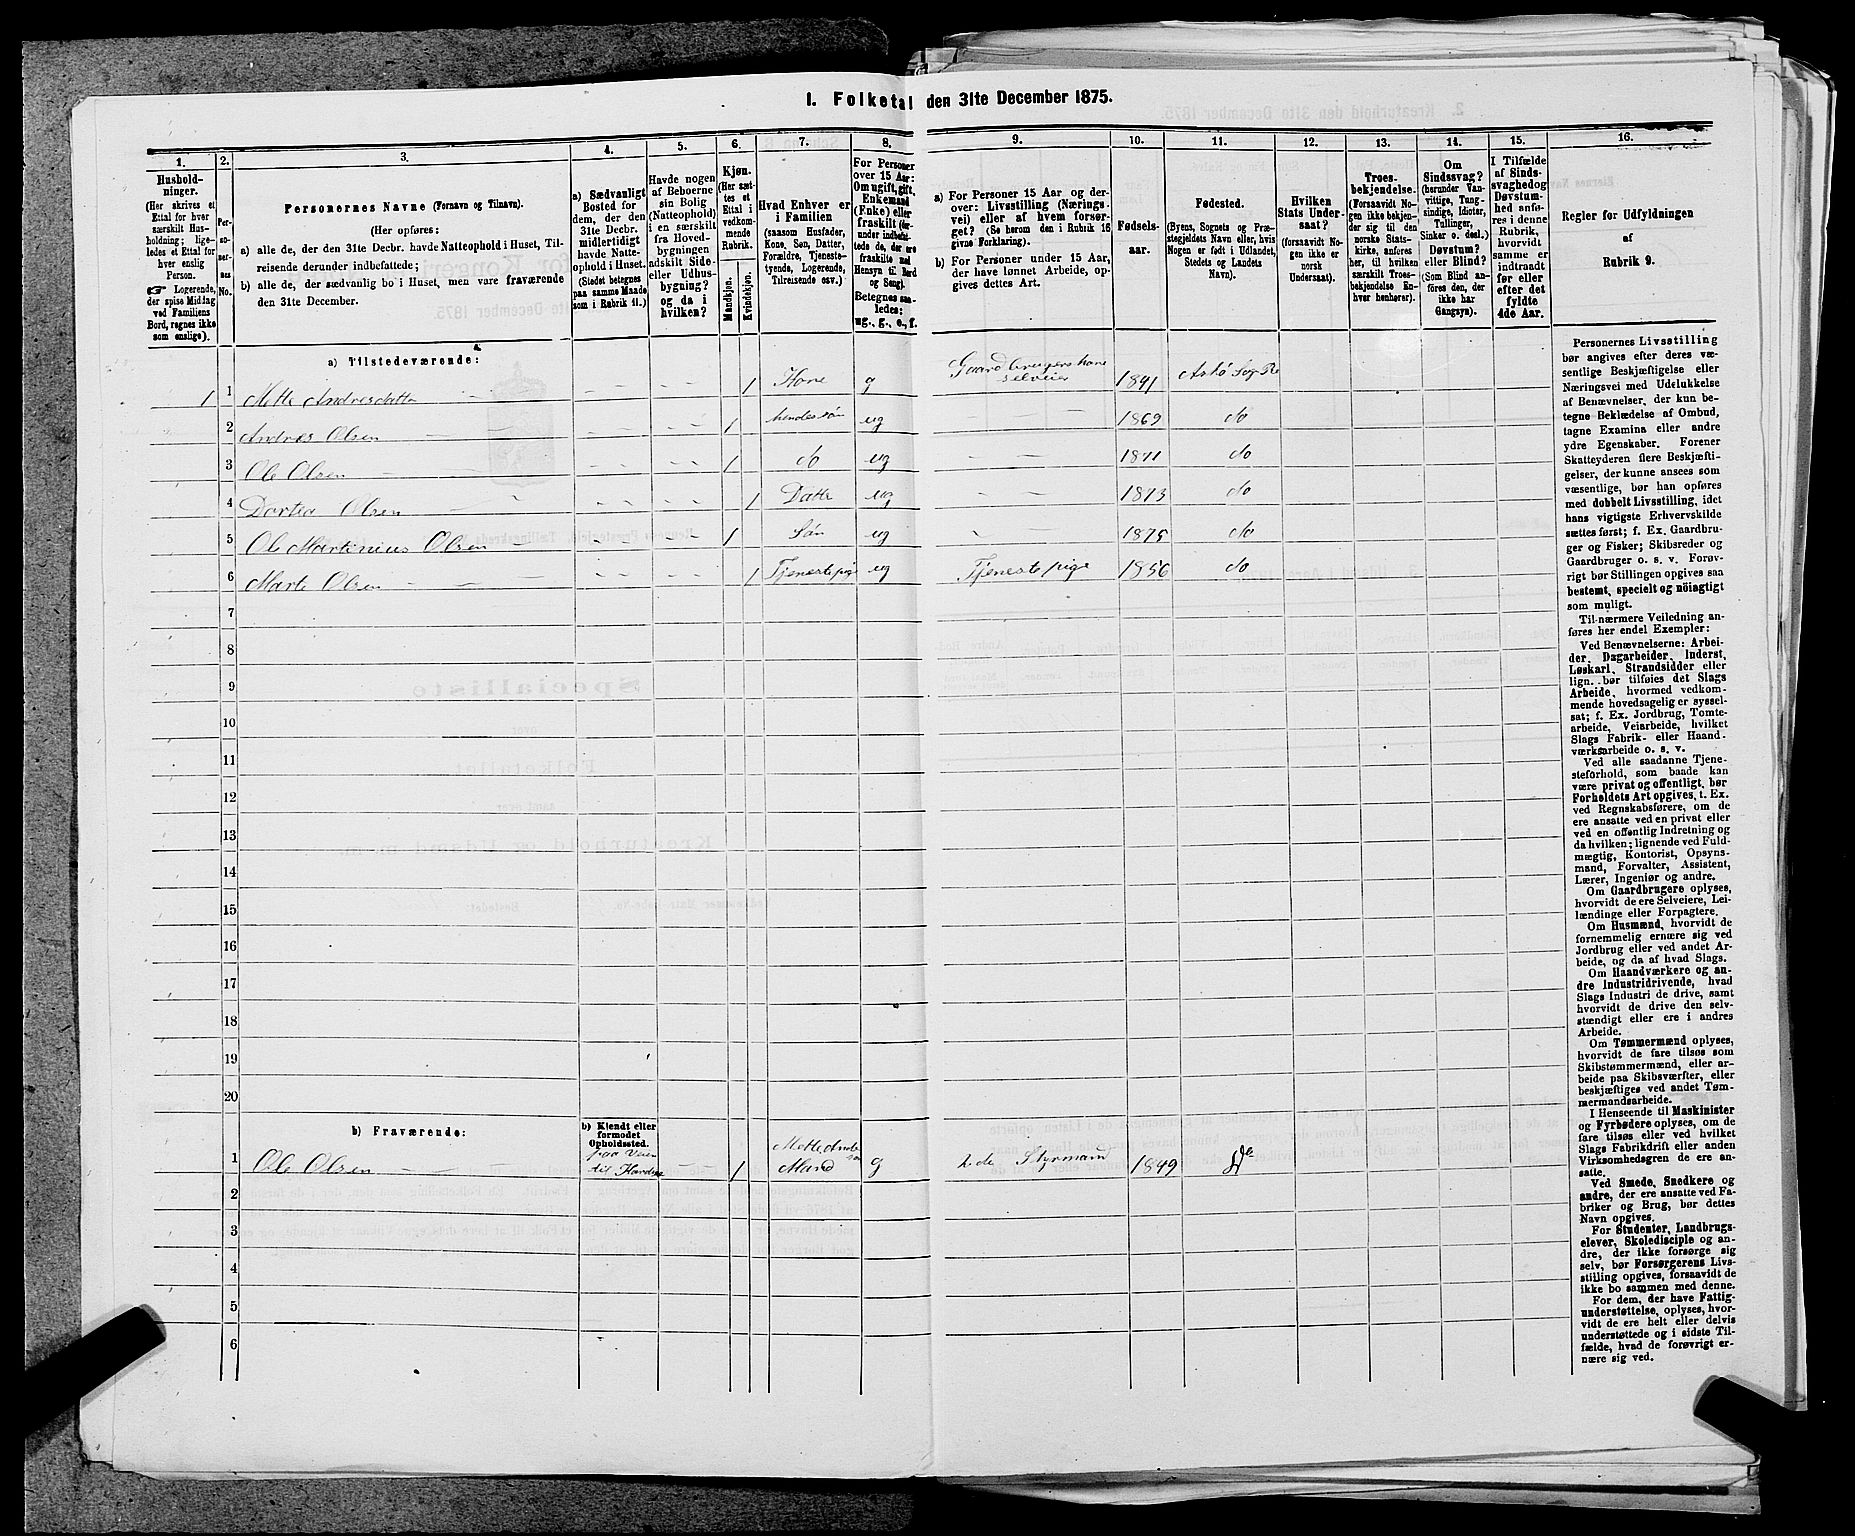 1. Folketal den 31te December 1875.
1.
Hushold-
ninger.
(Her skrives et
Ettal for hver
særskilt Hus-
holdning; lige-
ledes et Ettal for
hver enslig
Person.
☞ Logerende,
der spise Middag
ved Familiens
Bord, regnes ikke
som enslige).
2.
Per-
so-
ner-
nes
No.
3.
Personernes Navne (Fornavn og Tilnavn).
(Her opføres:
a) alle de, der den 31te Decbr. havde Natteophold i Huset, Til-
reisende derunder indbefattede;
b) alle de, der sædvanlig bo i Huset, men vare fraværende
den 31te December.
4.
a) Sædvanligt
Bosted for
dem, der den
31te Decbr.
midlertidigt
havde Natte-
ophold i Huset.
(Stedet betegnes
paa samme Maade
som i Rubrik 11.)
5.
Havde nogen
af Beboerne
sin Bolig
(Natteophold)
i en særskilt
fra Hoved-
bygningen
adskilt Side-
eller Udhus-
bygning?
og da i
hvilken?
6.
Kjøn.
(Her sæt-
tes et
Ettal i
vedkom-
mende
Rubrik.
Mandkjøn.
Kvindekjøn.
7.
Hvad Enhver er
i Familien
(saasom Husfader,
Kone, Søn, Datter,
Forældre, Tjeneste-
tyende, Logerende,
Tilreisende osv.)
8.
For Personer
over 15 Aar:
Om ugift, gift,
Enkemand
(Enke) eller
fraskilt (her-
under indbefat-
tede de, der ere
fraskilte med
Hensyn til Bord
og Seng).
Betegnes saa-
ledes:
ug., g., e., f.
9.
a) For Personer 15 Aar og der-
over: Livsstilling (Nærings-
vei) eller af hvem forsør-
get? (Se herom den i Rubrik 16
givne Forklaring).
b) For Personer under 15 Aar,
der have lønnet Arbeide, op-
gives dettes Art.
10.
Fødsels-
aar.
11.
Fødested.
(Byens, Sognets og Præ-
stegjeldets Navn eller, hvis
Nogen er født i Udlandet,
Stedets og Landets
Navn).
12.
Hvilken
Stats Under-
saat?
(forsaavidt No-
gen ikke er
norsk
Undersaat).
13.
Troes-
bekjendelse.
(Forsaavidt No-
gen ikke bekjen-
der sig til den
norske Stats-
kirke, anføres
her, til hvilken
særskilt Troes-
bekjendelse En-
hver henhører).
14.
Om
Sindssvag?
(herunder Van-
vittige, Tung-
sindige, Idioter,
Tullinger,
Sinker o. desl.)
Døvstum?
eller Blind?
(Som Blind an-
føres den, der
ikke har
Gangsyn).
15.
I Tilfælde
af Sinds-
svaghed og
Døvstum-
hed anfø-
res i denne
Rubrik,
hvorvidt
samme er
indtraadt
før eller
efter det
fyldte
4de Aar.
16.
Regler for Udfyldningen
af
Rubrik 9.
a) Tilstedeværende:
1 1 Mette Andresdatte 1 Kone g Gaardbrugerskone selveier 1841
2 Andres Olsen 1 hendes søn ug 1869 do
3 Ole Olsen 1 do ug 1871 do
4 Dortea Olsen 1 Datte ug 1873 do
5 Ole Martinius Olsen 1 Søn ug 1875 do
6 Marte Olsen 1 Tjenestepige ug Tjenestepige 1856 do
7
8
9
10
11
12
13
14
15
16
17
18
19
20
b) Fraværende:
b) Kjendt eller
formodet
Opholdssted.
1 Ole Olsen paa Veien til 1 Mette Mand g Styrmand 1849
2
3
4
5
6
Personernes Livsstilling
bør angives efter deres væ-
sentlige Beskjæftigelse eller
Næringsvei med Udelukkelse
af Benævnelser, der kun be-
tegne Beklædelse af Ombud,
tagne Examina eller andre
ydre Egenskaber. Forener
Skatteyderen flere Beskjæfti-
gelser, der kunne ansees som
væsentlige, bør han opføres
med dobbelt Livsstilling, idet
hans vigtigste Erhvervskilde
sættes først; f. Ex. Gaardbru-
ger og Fisker; Skibsreder og
Gaardbruger o. s. v. Forøv-
rigt bør Stillingen opgives saa
bestemt, specielt og nöiagtigt
som muligt.
Til nærmere Veiledning an-
føres her endel Exempler:
Ved Benævnelserne: Arbei-
der, Dagarbeider, Inderst,
Løskarl, Strandsidder eller
lign. bør tilføies det Slags
Arbeide, hvormed vedkom-
mende hovedsagelig er syssel-
sat; f. Ex. Jordbrug, Tomte-
arbeide, Veiarbeide, hvilket
Slags Fabrik- eller Haand-
værksarbeide o. s. v.
Ved alle saadanne Tjene-
steforhold, som baade kan
være privat og offentligt, bør
Forholdets Art opgives, t. Ex.
ved Regnskabsførere, om de
ere ansatte ved en privat eller
ved en offentlig Indretning og
da hvilken; lignende ved Fuld-
mægtig, Kontorist, Opsyns-
mand, Forvalter, Assistent,
Lærer, Ingeniør og andre.
Om Gaardbrugere oplyses,
hvorvidt de ere Selveiere, Lei-
lændinge eller Forpagtere.
Om Husmænd, hvorvidt de
fornemmelig ernære sig ved
Jordbrug eller ved andet Ar-
beide, og da af hvad Slags.
Om Haandværkere og an-
dre Industridrivende, hvad
Slags Industri de drive, samt
hvorvidt de drive den selv-
stændigt eller ere i andres
Arbeide.
Om Tømmermænd oplyses,
hvorvidt de fare tilsøs som
Skibstømmermænd, eller ar-
beide paa Skibsværfter, eller
beskjæftiges ved andet Tøm-
mermandsarbeide.
I Henseende til Maskinister
og Fyrbødere oplyses, om de
fare tilsøs eller ved hvilket
Slags Fabrikdrift eller anden
Virksomhedsgren de ere an-
satte.
Ved Smede, Snedkere og
andre, der ere ansatte ved Fa-
briker og Brug, bør dettes
Navn opgives.
For Studenter, Landbrugs-
elever, Skoledisciple og an-
dre, der ikke forsørge sig
selv, bør Forsørgerens Livs-
stilling opgives, forsaavidt de
ikke bo sammen med denne.
For dem, der have Fattig-
understøttelse, oplyses, hvor-
vidt de ere helt eller delvis
understøttede og i sidste Til-
fælde, hvad de forøvrigt er-
nære sig ved.